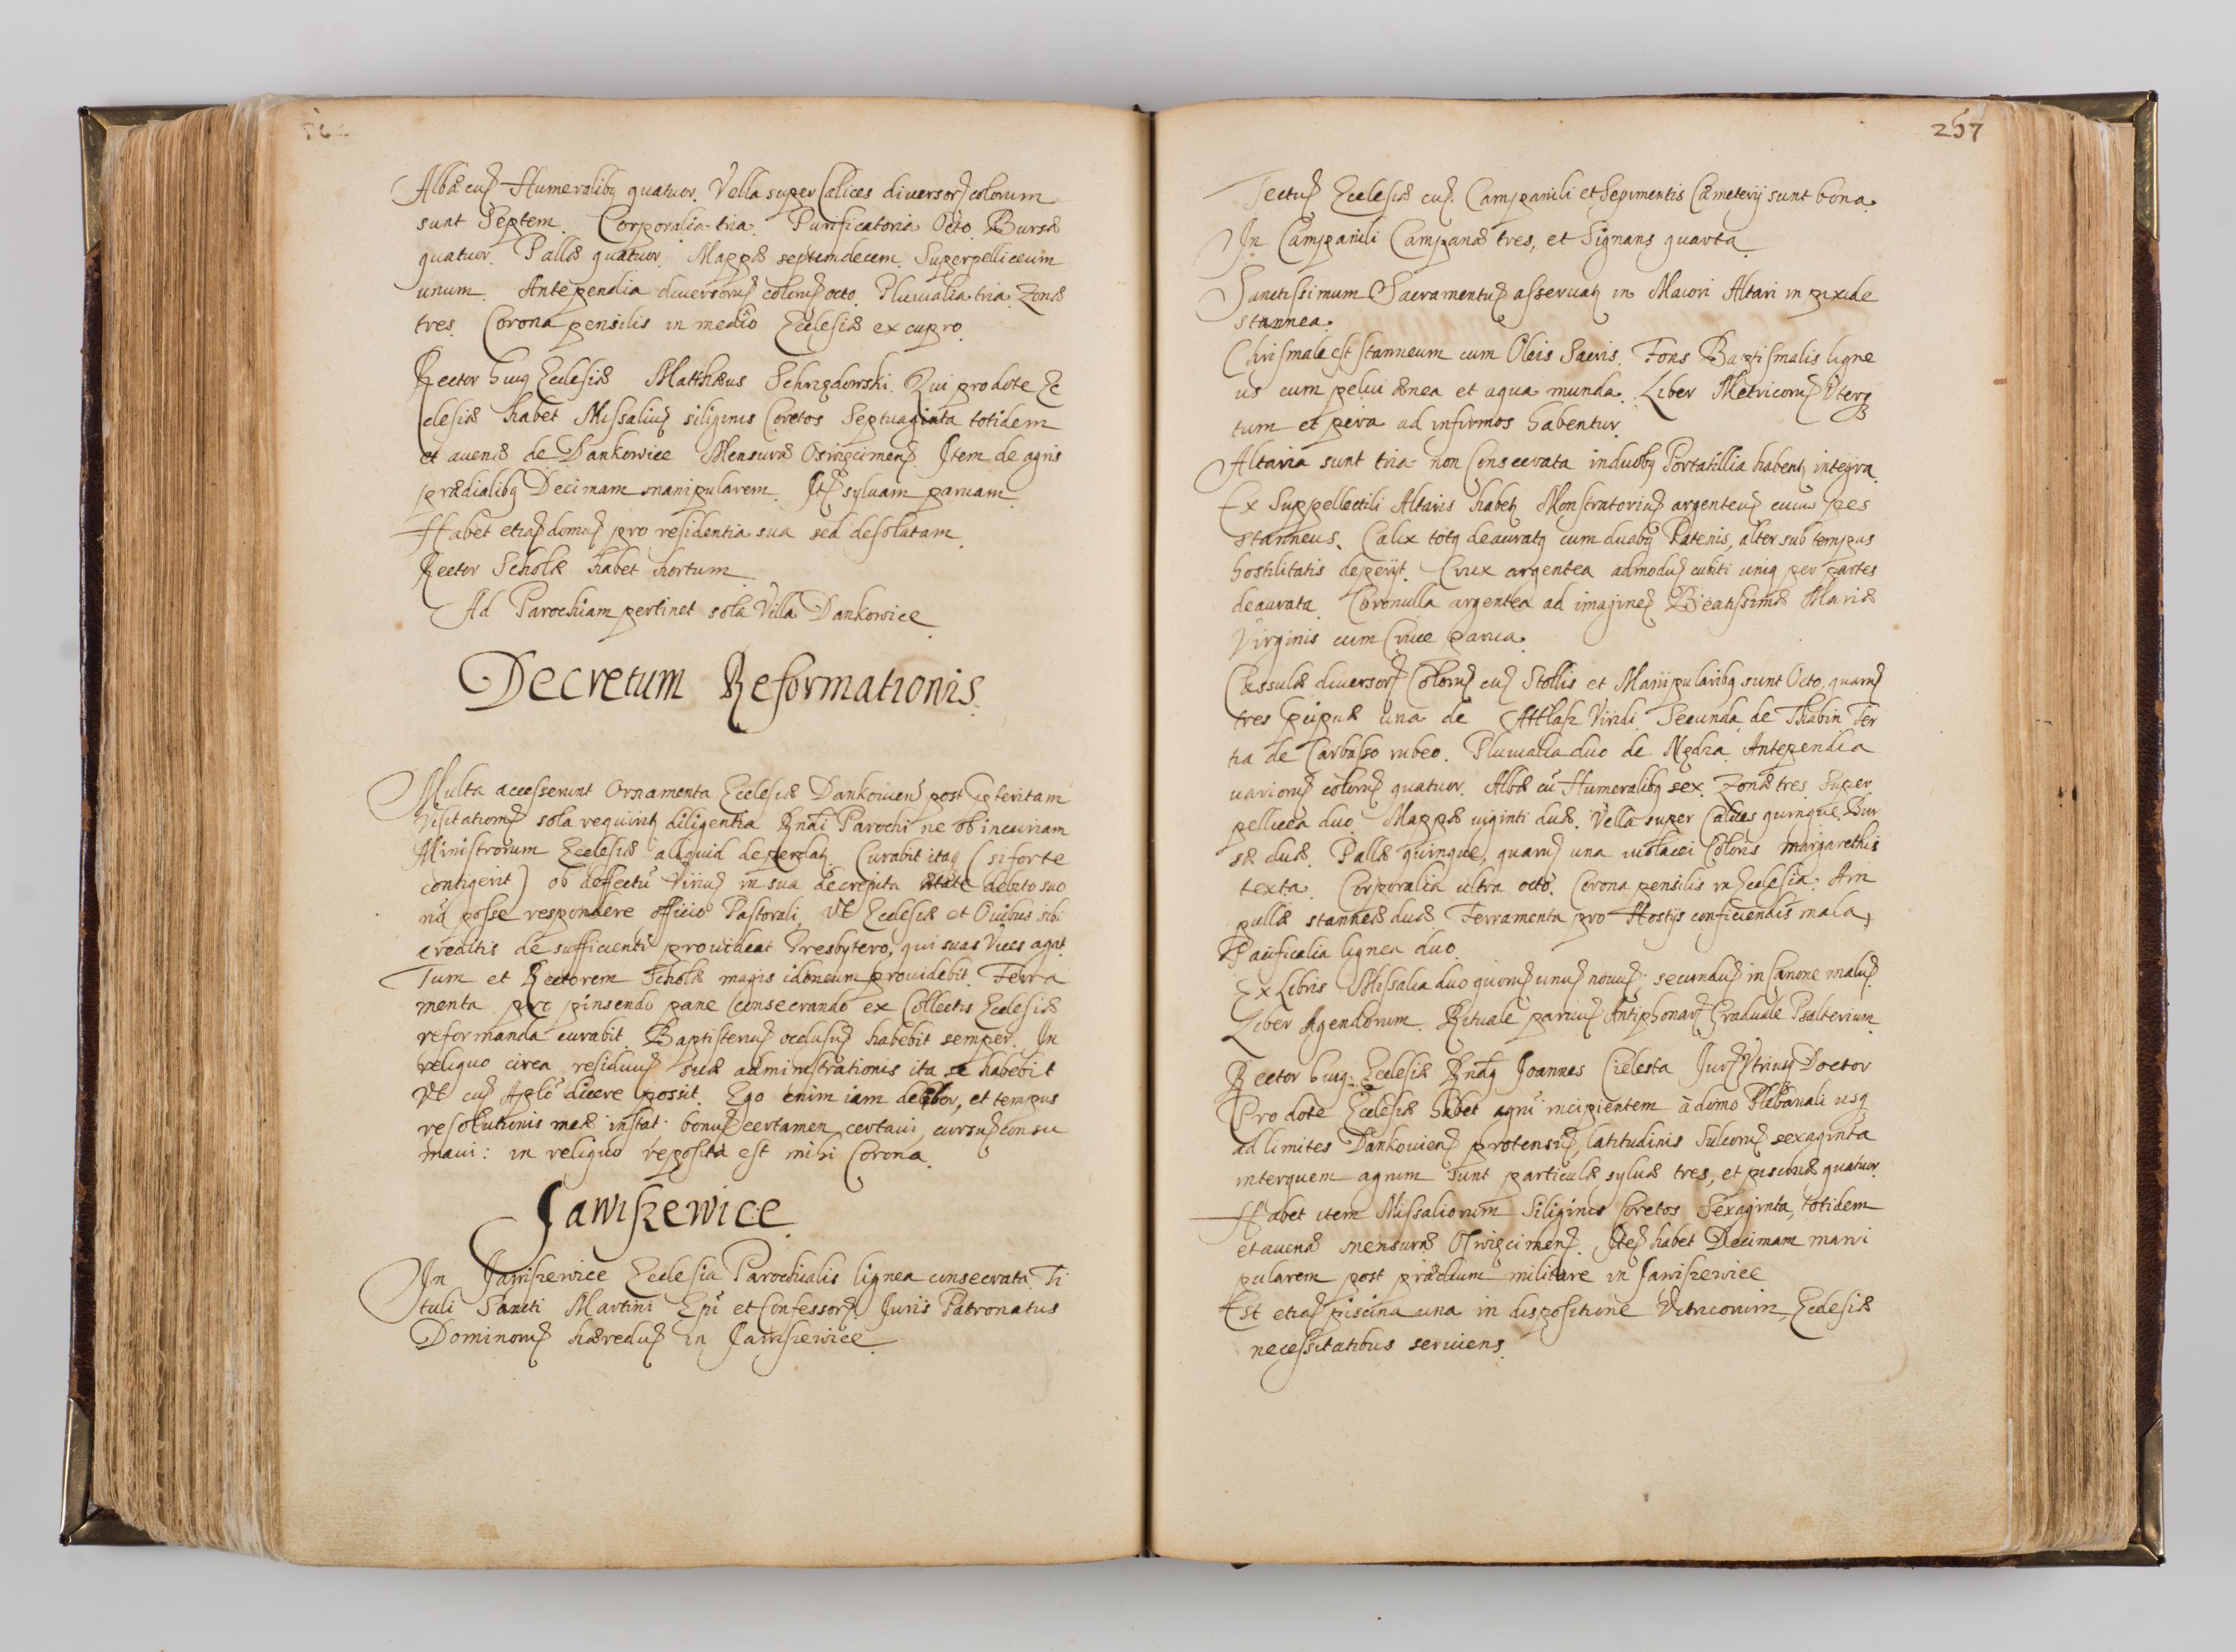 Albæ cuɱ Humeralibꝫ quatuor. Vella super Calices diversorꝫ colorum
sunt Septem. Corporalia tria. Purificatoria Octo. Bursæ
quatuor. Pallæ quatuor. Mappæ septemdecem. Superpelliceum
unum. Antependia diversoruɱ coloruɱ octo. Pluuialia tria. Zonæ
tres. Corona pensilis in medio Ecclesiæ ex cupro.
Rector huiꝯ Ecclesiæ Matthæus Schrzędowski. Qui pro dote Ec
clesiæ habet Missaliuɱ siliginis Coretos Septuaginta totidem
et auenæ de Dankowice Mensuræ Oswięcimenꝭ. Item de agris
prædialibꝫ Decimam manipularem. Itꝫ syluam paruam.
Habet etiaɱ domuɱ pro residentia sua sed desolatam.
Rector Scholæ habet hortum.
Ad Parochiam pertinet sola Villa Dankowice.
Decretum Reformationis.
Multa accesserunt Ornamenta Ecclesiæ Dankouienꝭ post pteritam
Visitationeɱ sola requiritꝫ diligentia Rndi Parochi ne ob incuriam
Ministrorum Ecclesiæ aliquid deperdatꝫ. Curabit itaqꝫ (si forte
contigerit) ob deffectū Viriuɱ in sua decrepita ætate debito suo
nō posse respondere officio Pastorali Vt Ecclesiæ et Ouibus sibi
creditis de sufficienti prouideat Presbytero, qui suas Vices agat.
Tum et Rectorem Scholæ magis idoneum prouidebit. Ferra
menta pro pinsendo pane consecrando ex Collectis Ecclesiæ
reformanda curabit. Baptisteriuɱ occlusuɱ habebit semper. In
reliquo circa residuuɱ suæ administrationis ita se habebit
Vt cuɱ Aplō dicere possit. Ego enim iam delibor, et tempus
resolutionis meæ instat: bonuɱ certamen certaui, cursuɱ consu
maui: in reliquo reposita est mihi Corona.
Jawiszewice
In Jawiszewice Ecclesia Parochialis lignea consecrata. Ti
tuli Sancti Martini Epi et Confessorꝭ. Juris Patronatus
Dominoruɱ hæreduɱ in Jawiszewice.
257
Tectuɱ Ecclesiæ cuɱ Campanili et Sepimentis Cæmeterij sunt bona.
In Campanili Campanæ tres, et Signans quarta.
Sanctissimum Sacramentuɱ asseruatꝫ in Maiori Altari in pixide
stannea.
Chrismale est stanneum cum Oleis Sacris. Fons Baptismalis ligne
us cum pelui ænea et aqua munda. Liber Metricoruɱ Vterqꝫ
tum et pera ad infirmos habentur.
Altaria sunt tria non Consecrata induobꝫ Portatillia habentꝫ integra.
Ex Suppellectili Altaris habetꝫ Monstratoriuɱ argenteuɱ cuius pes
stanneus. Calix totꝯ deauratꝯ cum duabꝫ Patenis, alter sub tempus
hostilitatis deperijt. Crux argentea admoduɱ cubiti uniꝯ per partes
deaurata. Coronulla argentea ad imagineɱ Beatissimæ Mariæ
Virginis cum Cruce parua.
Cassulæ diversorꝫ Coloruɱ cuɱ Stollis et Manipularibꝫ sunt Octo, quaruɱ
tres pcipuæ una de Attlasz Viridi Secunda de Thabin Ter
tia de Carbasso rubeo. Pluuialia duo de Nędra. Antependia
uarioruɱ coloruɱ quatuor. Albæ cū Humeralibꝫ sex. Zonæ tres Super
pellicea duo. Mappæ uiginti duæ. Vella super Calices quinque. Bur
sæ duæ. Pallæ quinque, quaruɱ una uiolacei Coloris margarethis
texta. Corporalia ultra octo. Corona pensilis in Ecclesia. Am
pullæ stanneæ duæ Ferramenta pro Hostijs conficiendis mala,
Pacificalia lignea duo.
Ex Libris Missalia duo quoruɱ unuɱ nouuɱ; secunduɱ in Canone maluɱ.
Liber Agendorum. Rituale paruuɱ Antiphonarꝫ Graduale Psalterium.
Rector huiꝯ Ecclesiæ Rndꝯ Joannes Cielesta Jurꝭ Vtriusqꝫ Doctor
Pro dote Ecclesiæ habet agrū incipientem à domo Plebanali usqꝫ
ad limites Dankouienꝭ protensuɱ, latitudinis Sulcoruɱ sexaginta
interquem agrum sunt particulæ syluæ tres, et piscinæ quatuor.
Habet item Missaliorum Siliginis Coretos Sexaginta, totidem
et auenæ mensuræ Oswięcimenꝭ. Iteɱ habet Decimam mani
pularem post prædium militare in Jawiszewice
Est etiaɱ piscina una in dispositione Vitricorum, Ecclesiæ
necessitatibus seruiens.